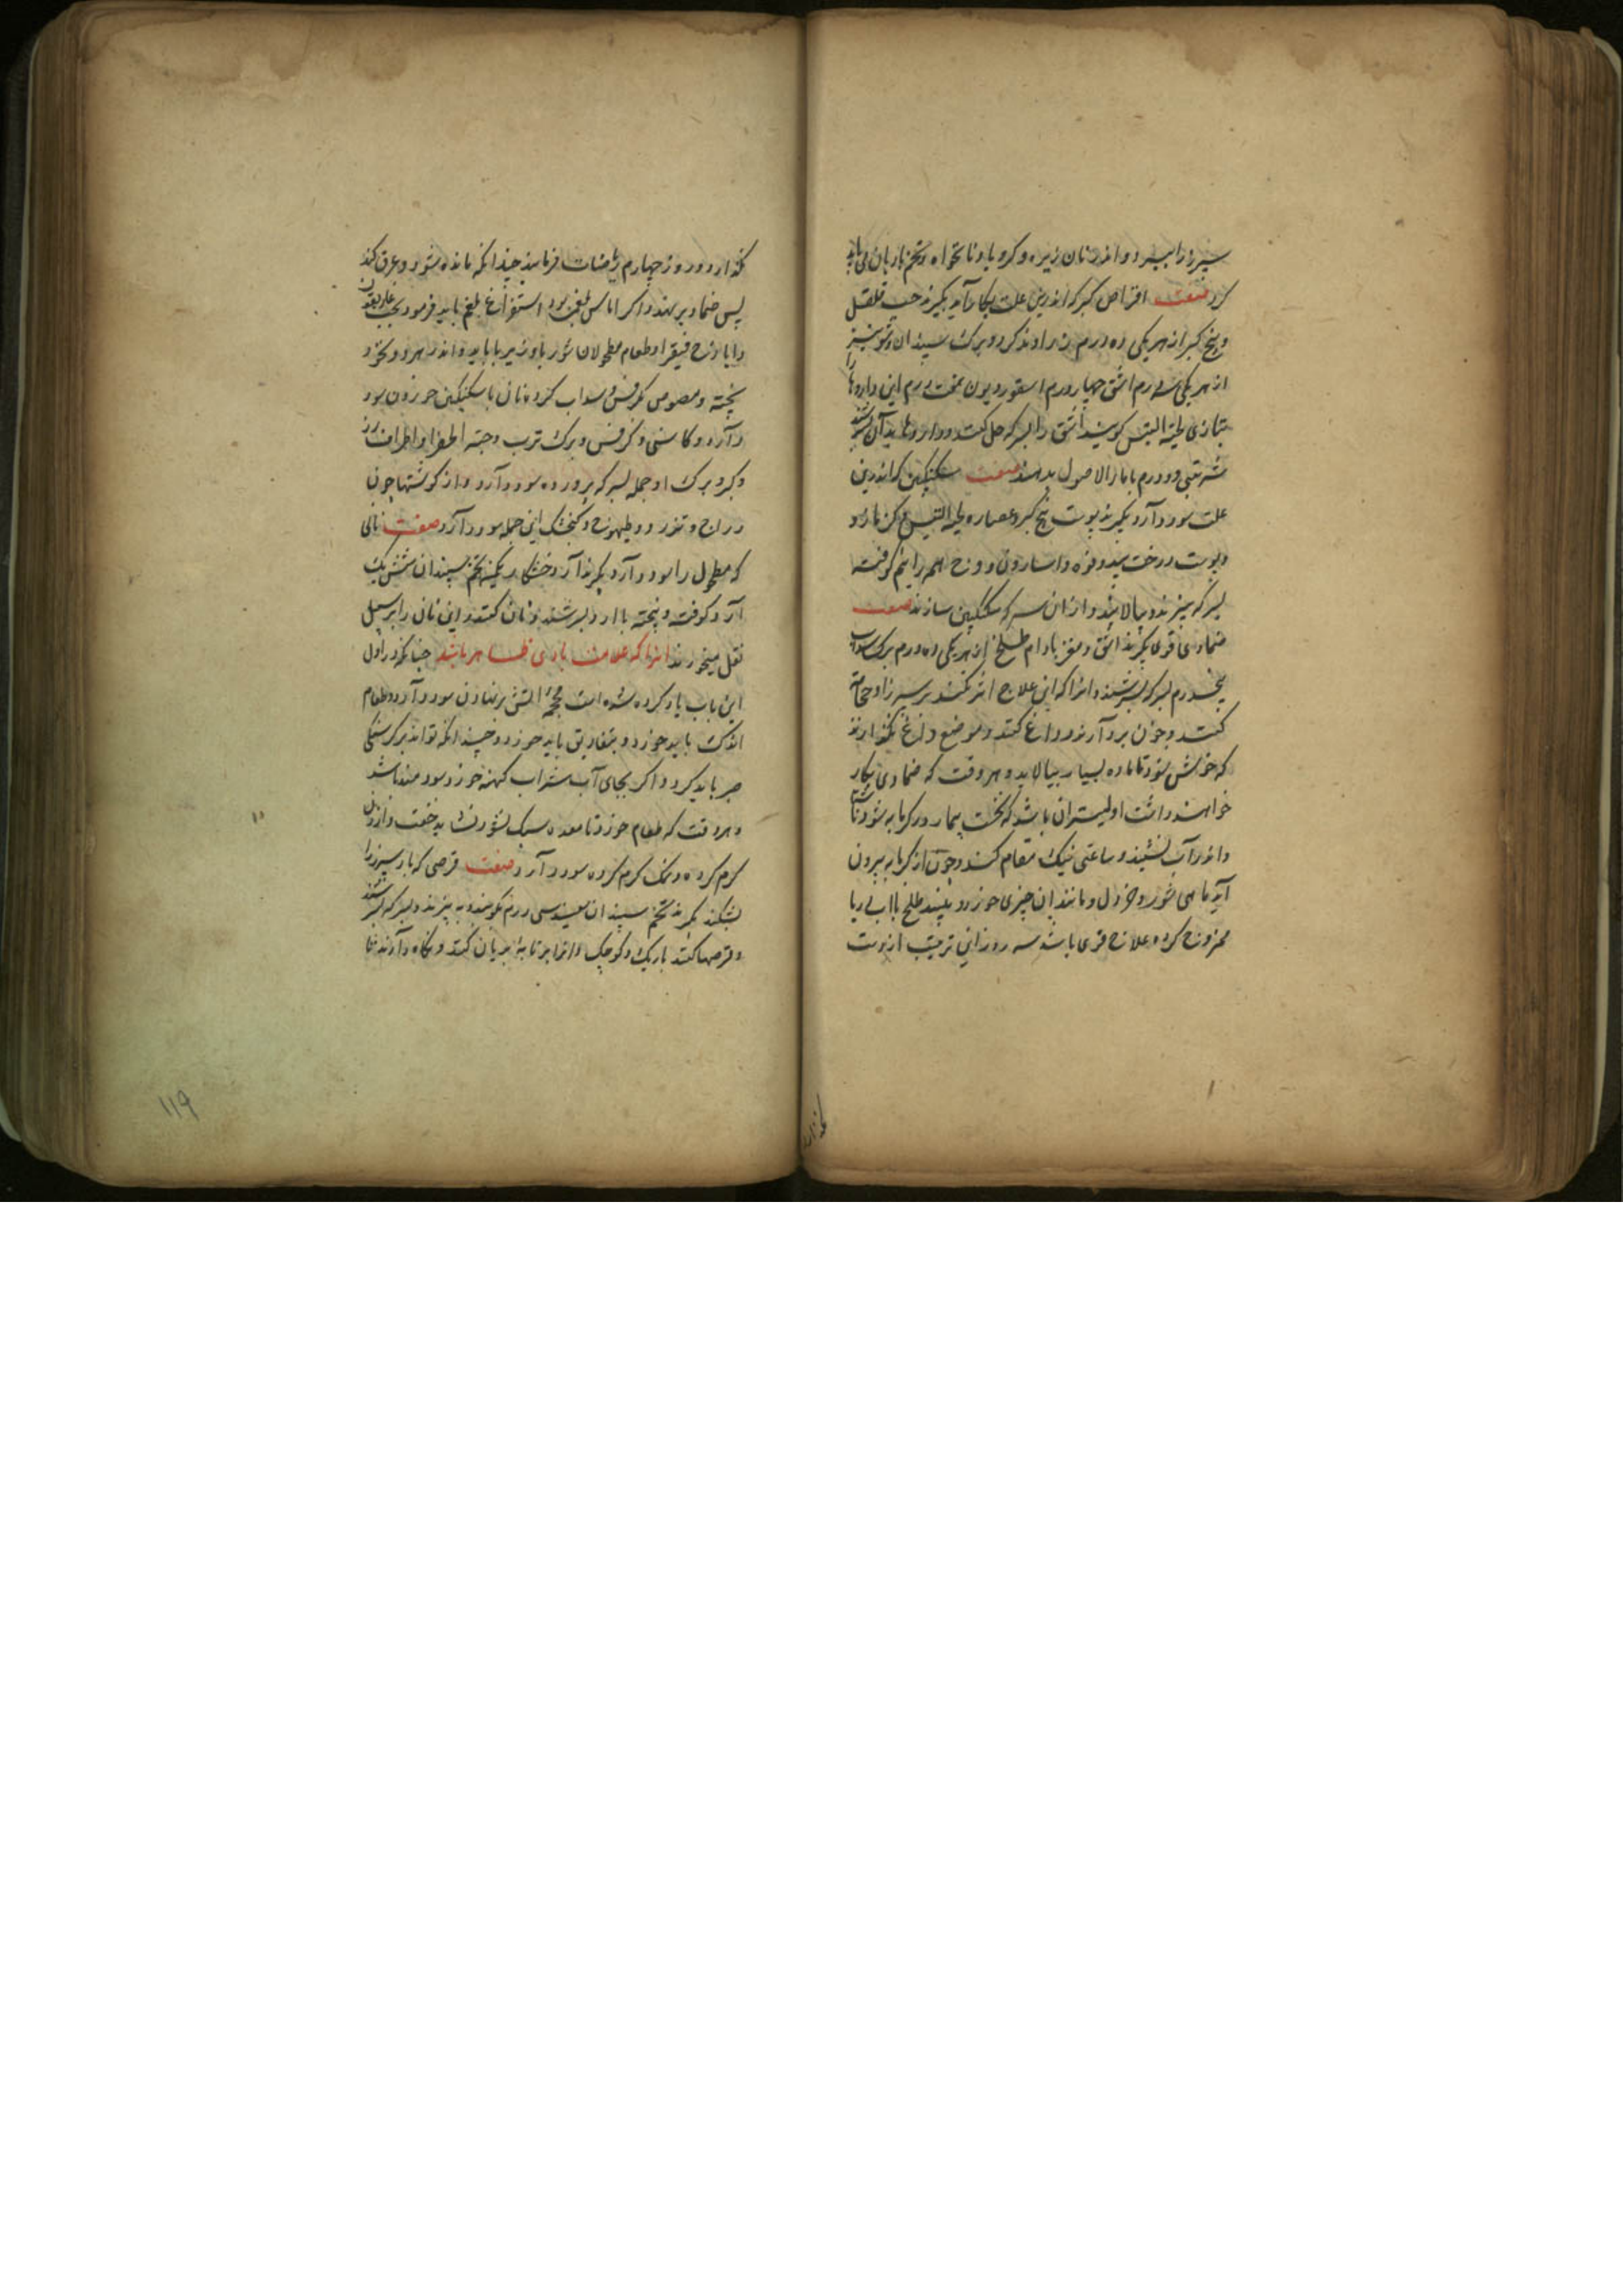 سپرز را ببرد و اندر نان زیره و کرویا و نانخواه و تخم بادیان می باید
کرد صفت اقراص کبر که اندرین علت بکار آید بکیرند حب فلفل
و بیخ کبر از هر یکی ده درم زراوند کرد و برک سپندان و شونیز
از هر یکی سه درم اشق چهار درم اسقوردیون هفت درم این داروها را
بتازی لحیة التیس کویند اشق را بسرکه حل کنند و داروها بدان بسرشند
شربتی دو درم با ماء الاصول بدهند صفت سکنکبین که اندرین
علت سود دارد بکیرند پوست بیخ کبر و عصاره لحیة التیس و کزمازو
و پوست درخت بید و فوه و اسارون و وج همه را نیم کوفته
بسرکه بپزند و بپالایند و از ان سرکه سکنکبین سازند صفت
ضمادی قوی بکیرند اشق و مغز بادام طلخ از هر یکی ده درم برک سداب
پنج درم بسرکه بسرشند و انرا که این علاج اثر نکند بر سپرز او حجامت
کنند و خون برد آرند و داغ کنند و موضع داغ نکذارند
که خوش شود تا ماده بسیار بپالاید و هر وقت که ضمادی بکار
خواهند داشت اولیتر ان باشد که نخست بیمار در کرمابه شود ناشتا
و اندر آب نشیند و ساعتی نیک مقام کند و چون از کرمابه بیرون
آید ماهی شور و خردل و مانند ان چیزی خورد و نبیند طلخ با آب دریا
ممزوج کرده علاج قوی باشد سه روز این ترتیب از دست
نکذارد
نکذارد و روز چهارم ریاضات فرمایند چندانکه مانده شود و عرق کند
پس ضماد بر نهند و اکر اماس بلغمی بود استفراغ بلغم باید فرمود بحب غاریقون
و ایارج فیقرا و طعام مطحولان شوربا و زیربا باید و اندر هر دو نخود
پخته و مصوص کرفس و سداب کرده نان با سکنکبین خوردن سود
دارد و کاسنی و کرفس و برک ترب و حبة الخضرا و اطراف رز
و کبر و برک او جمله بسرکه پرورده سود دارد و از کوشتها چون
دراج و تذرو و طیهوج و کنجشک این جمله سود دارد صفت نانی
که مطحول را سود دارد بکیرند آرد خشکار یکمن تخم سپندان شش یک
آرد کوفته و پخته با ارد بسرشند و نان کنند و این نان را بر سبیل
نقل میخورند انرا که علامت بادی ظاهر باشد چنانکه در اول
این باب یاد کرده شده است محجمه آتش بر نهادن سود دارد و طعام
اندک باید خورد و بتفاریق باید خورد و چندانکه تواند بر کرسنکی
صبر باید کرد و اکر بجای آب شراب کهنه خورد سودمند باشد
و هر وقت که طعام خورد تا معده سبک نشود نشاید خفت و ارزن
کرم کرده و نمک کرم کرده سود دارد صفت قرصی که باد سپرز را
بشکند بکیرند تخم سپندان سپید سی درم بکوبند و ببیزند و بسرکه بسرشند
و قرصها کنند باریک و کوچک و انرا بر تابه بریان کنند و نکاه دارند تا
۱۱۹